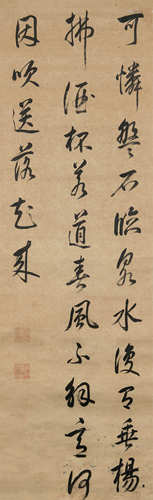 可憐盤石臨泉水復有垂楊
拂酒杯若道春風不解意何
因吹送落花來